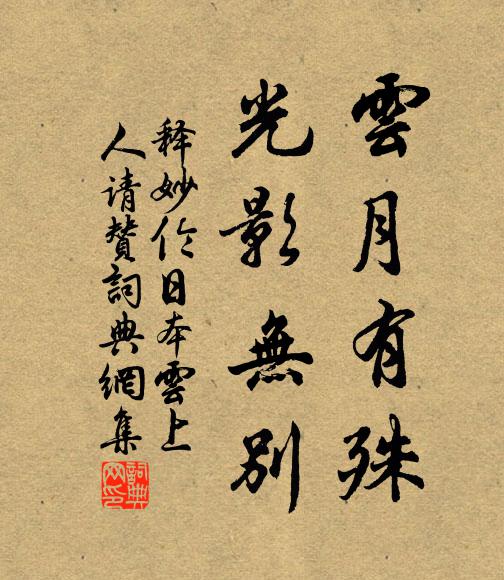 雲月有殊
光影無別
释妙伦日本雲上
人请贊詞典網集
詞典网印